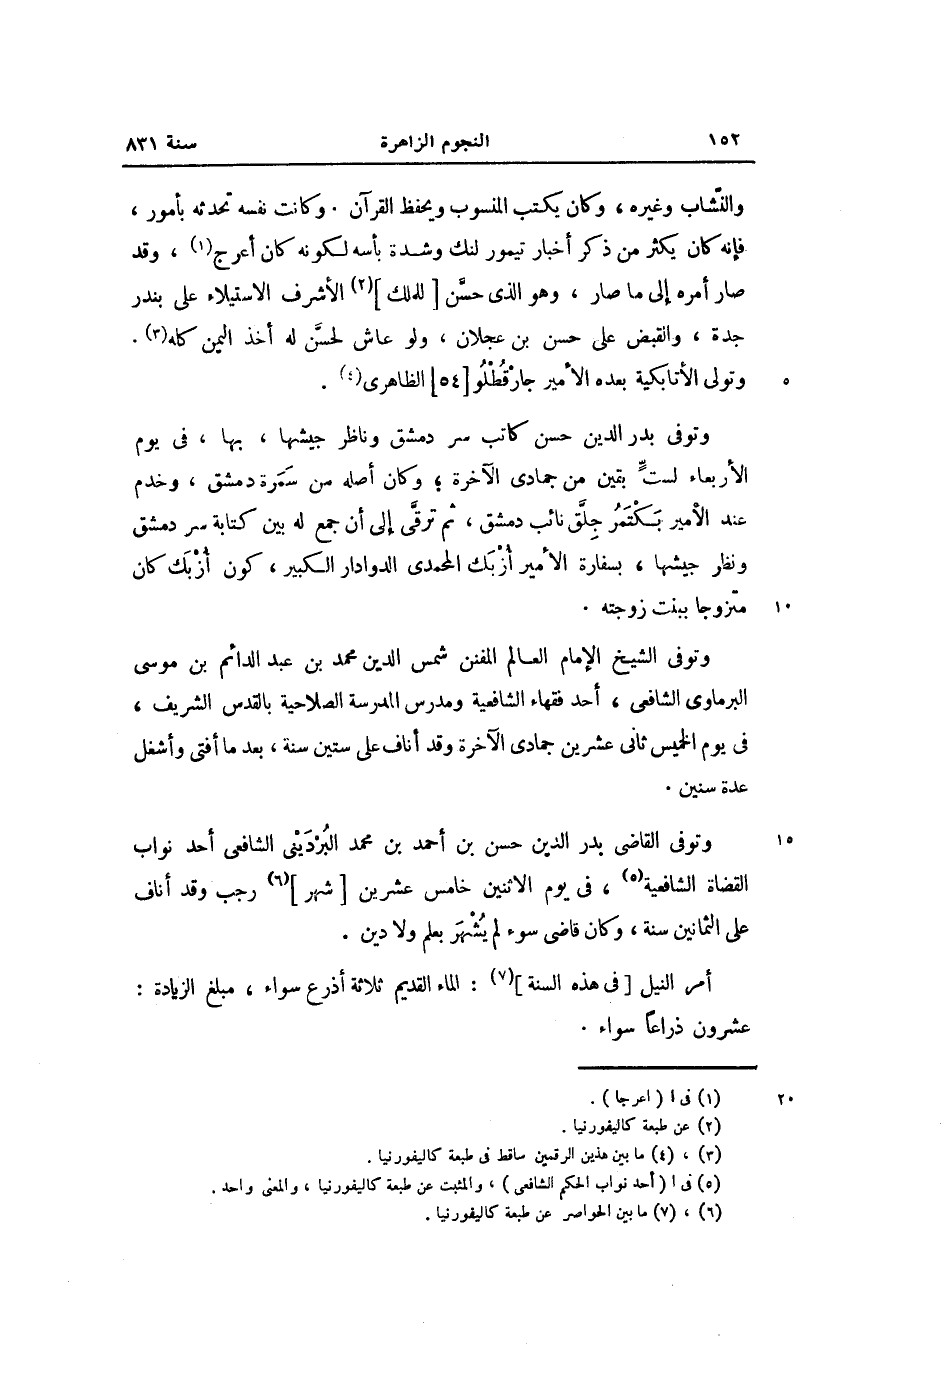 ١٥٢ النجوم الزاهرة سنة ٨٣١
والنّشاب وغيره ، وكان يكتب المنسوب ويحفظ القرآن . وكانت نفسه تحدثه بأمور ،
فإنه كان يكثر من ذكر أخبار تيمور لنك وشدة بأسه لكونه كان أعرج(١) ، وقد
صار أمره إلى ما صار ، وهو الذى حسَّن [ للملك ](٢) الأشرف الاستيلاء على بندر
جدة ، والقبض على حسن بن عجلان ، ولو عاش لحسَّن له أخذ اليمن كله(٣) .
وتولى الأتابكية بعده الأمير جارْقُطْلُو [٥٤] الظاهرى(٤) . ٥
وتوفى بدر الدين حسن كاتب سر دمشق وناظر جيشها ، بها ، فى يوم
الأربعاء لستٍّ بقين من جمادى الآخرة ؛ وكان أصله من سَمَرة دمشق ، وخدم
عند الأمير بَكْتَمُر جِلَّق نائب دمشق ، ثم ترقَّى إلى أن جمع له بين كتابة سر دمشق
ونظر جيشها ، بسفارة الأمير أُزْبَك المحمدى الدوادار الكبير ، كون أُزْبَك كان
متزوجا ببنت زوجته . ١٠
وتوفى الشيخ الإمام العالم المفنن شمس الدين محمد بن عبد الدائم بن موسى
البرماوى الشافعى ، أحد فقهاء الشافعية ومدرس المدرسة الصلاحية بالقدس الشريف ،
فى يوم الخميس ثانى عشرين جمادى الآخرة وقد أناف على ستين سنة ، بعد ما أفتى وأشغل
عدة سنين .
وتوفى القاضى بدر الدين حسن بن أحمد بن محمد البُرْدَيْنى الشافعى أحد نواب ١٥
القضاة الشافعية(٥) ، فى يوم الاثنين خامس عشرين [ شهر ](٦) رجب وقد أناف
على الثمانين سنة ، وكان قاضى سوء لم يُشْهَر بعلم ولا دين .
أمر النيل [ فى هذه السنة ](٧) : الماء القديم ثلاثة أذرع سواء ، مبلغ الزيادة :
عشرون ذراعًا سواء .
(١) فى ا ( اعرجا ) . ٢٠
(٢) عن طبعة كاليفورنيا .
(٣) ، (٤) ما بين هذين الرقمين ساقط فى طبعة كاليفورنيا .
(٥) فى ا ( أحد نواب الحكم الشافعى ) ، والمثبت عن طبعة كاليفورنيا ، والمعنى واحد .
(٦) ، (٧) ما بين الحواصر عن طبعة كاليفورنيا .